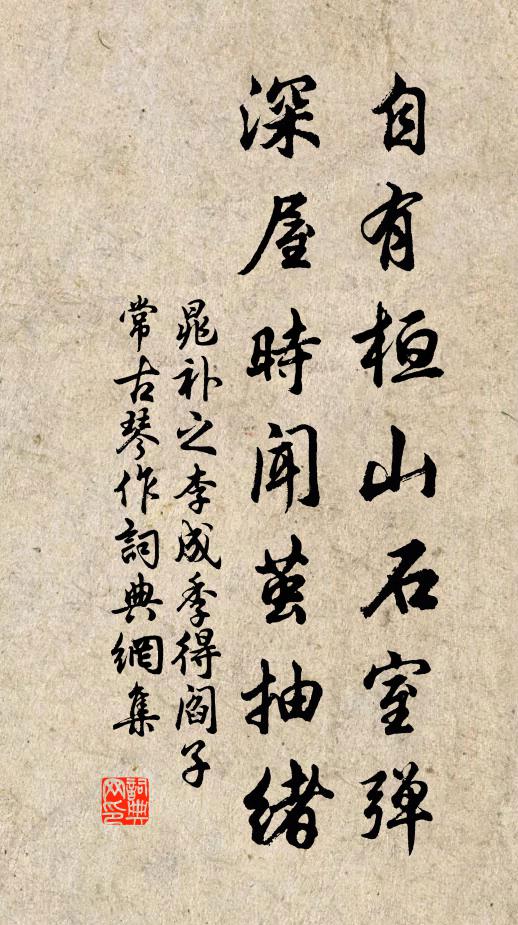 自有桓山石室弹
深屋時闻茧抽緒
晁补之李成季得阎子
常古琴作詞典網集
詞典网印